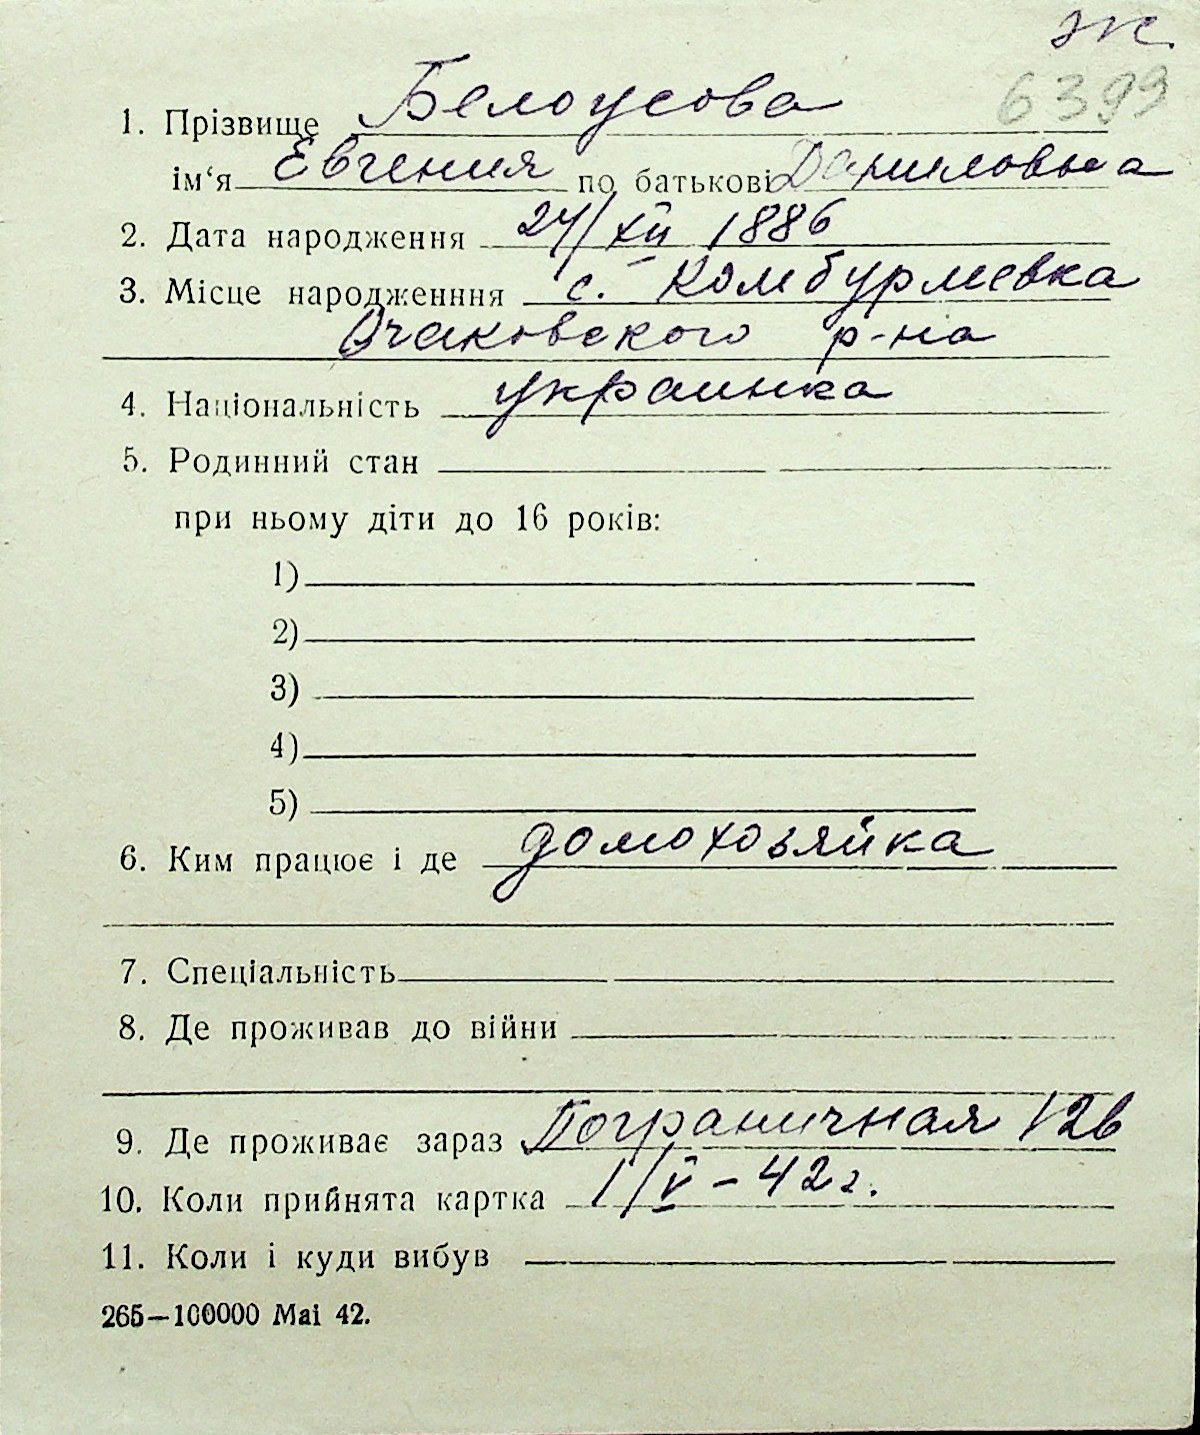 ж
6399
1. Прізвище Белоусова
ім‘я Евгения по батькові Даниловна
2. Дата народження 24/XII 1886
3. Місце народженння с. Комбурлеевка
Очаковского р-на
4. Національність украинка
5. Родинний стан
при ньому діти до 16 років:
1)
2)
3)
4)
5)
6. Ким працює і де домохозяйка
7. Спеціальність
8. Де проживав до війни
9. Де проживає зараз Пограничная 126
10. Коли прийнята картка 1/V – 42 г.
11. Коли і куди вибув
265—100000 Mai 42.